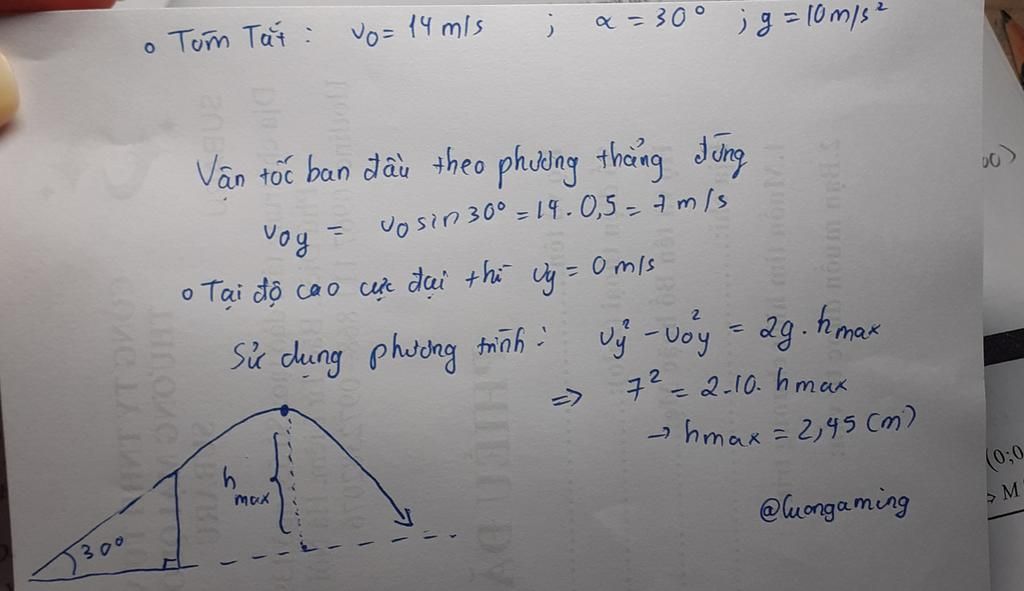 o Tóm Tắt : v₀ = 14 m/s ; α = 30° ; g = 10 m/s²
Vận tốc ban đầu theo phương thẳng đứng
v₀y = v₀ sin 30° = 14 . 0,5 = 7 m/s
o Tại độ cao cực đại thì vy = 0 m/s
Sử dụng phương trình : vy² - v₀y² = 2g . hmax
=> 7² = 2.10. hmax
→ hmax = 2,45 (m)
hmax
30°
@luongaming
00)
(0;0
> M